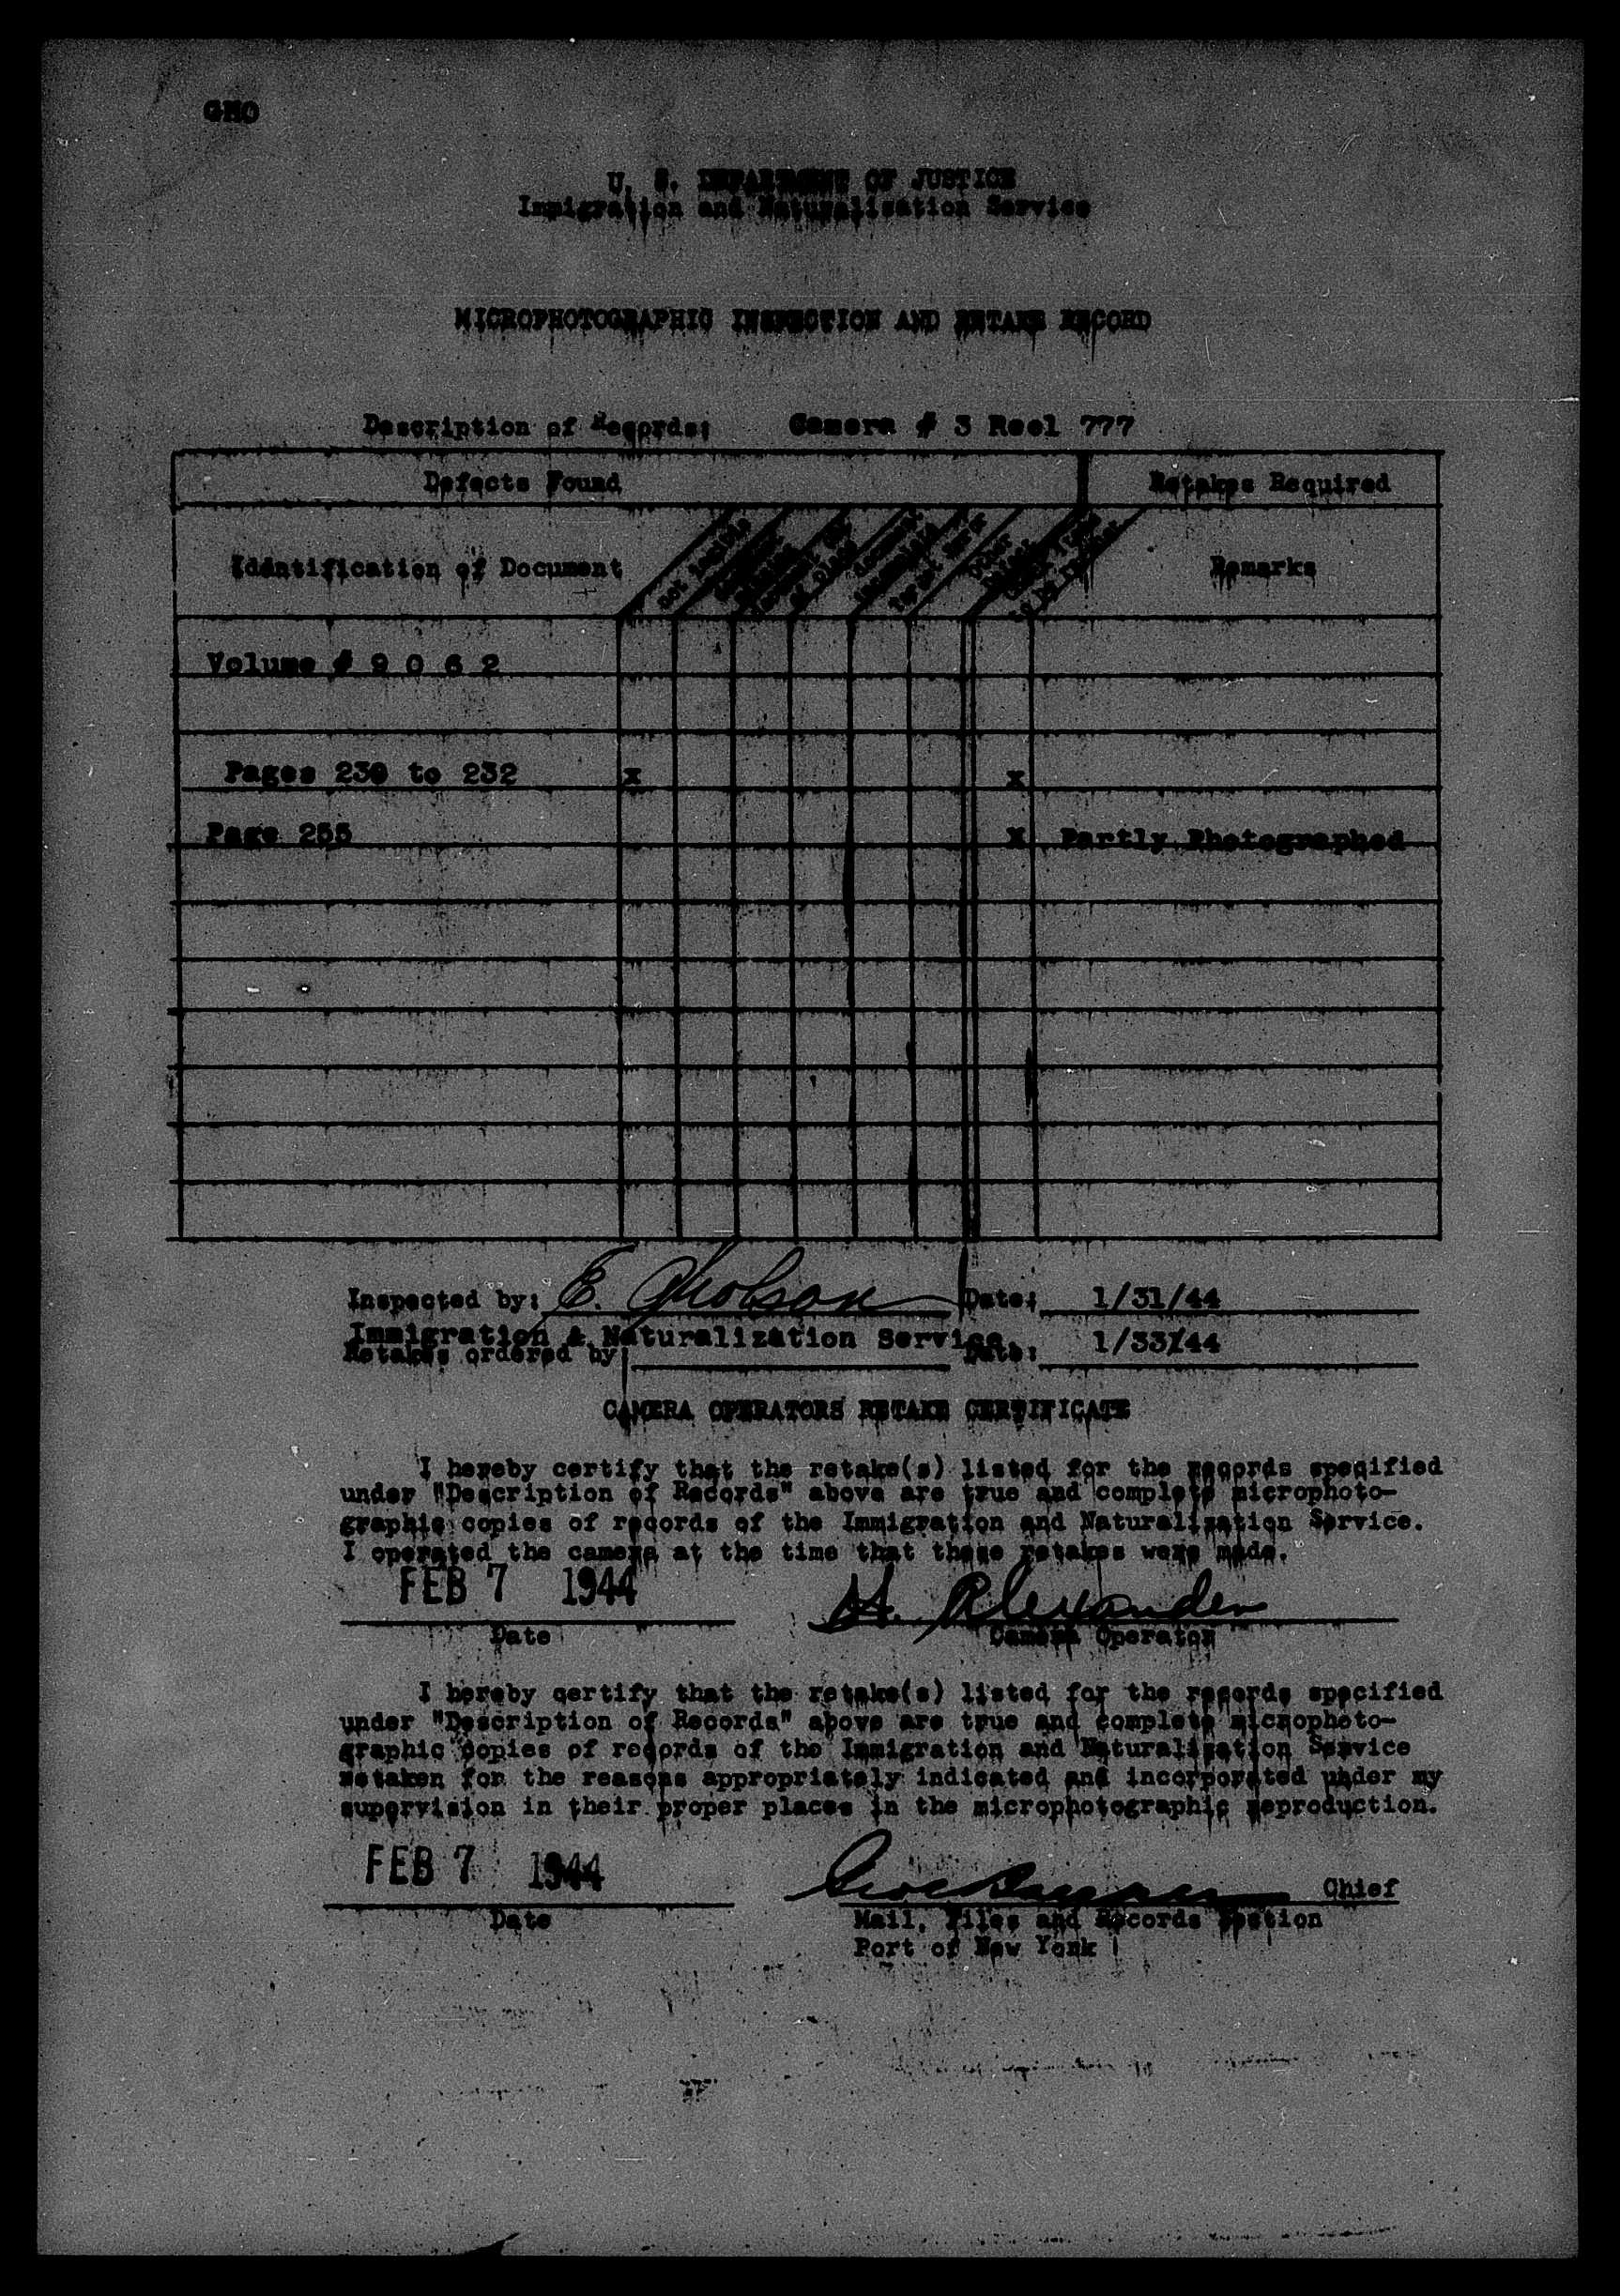 GMO
U. S. DEPARTMENT OF JUSTICE
Immigration and Naturalization Service
MICROPHOTOGRAPHIC INSPECTION AND RETAKE RECORD
Description of Records: Camera # 3 Reel 777
Defects Found Retakes Required
Identification of Document Remarks
Volume # 9 0 6 2
Pages 230 to 232 x x
Page 255 x Partly Photographed
Inspected by: E. Date: 1/31/44
Immigration & Naturalization Service
Retakes ordered by: Date: 1/33/44
CAMERA OPERATORS RETAKE CERTIFICATE
I hereby certify that the retake(s) listed for the records specified
under "Description of Records" above are true and complete microphoto-
graphic copies of records of the Immigration and Naturalization Service.
I operated the camera at the time that these retakes were made.
FEB 7 1944 Alexander
Date Camera Operator
I hereby certify that the retake(s) listed for the records specified
under "Description of Records" above are true and complete microphoto-
graphic copies of records of the Immigration and Naturalization Service
retaken for the reasons appropriately indicated and incorporated under my
supervision in their proper places in the microphotographic reproduction.
FEB 7 1944 Chief
Date Mail, Files and Records Section
Port of New York